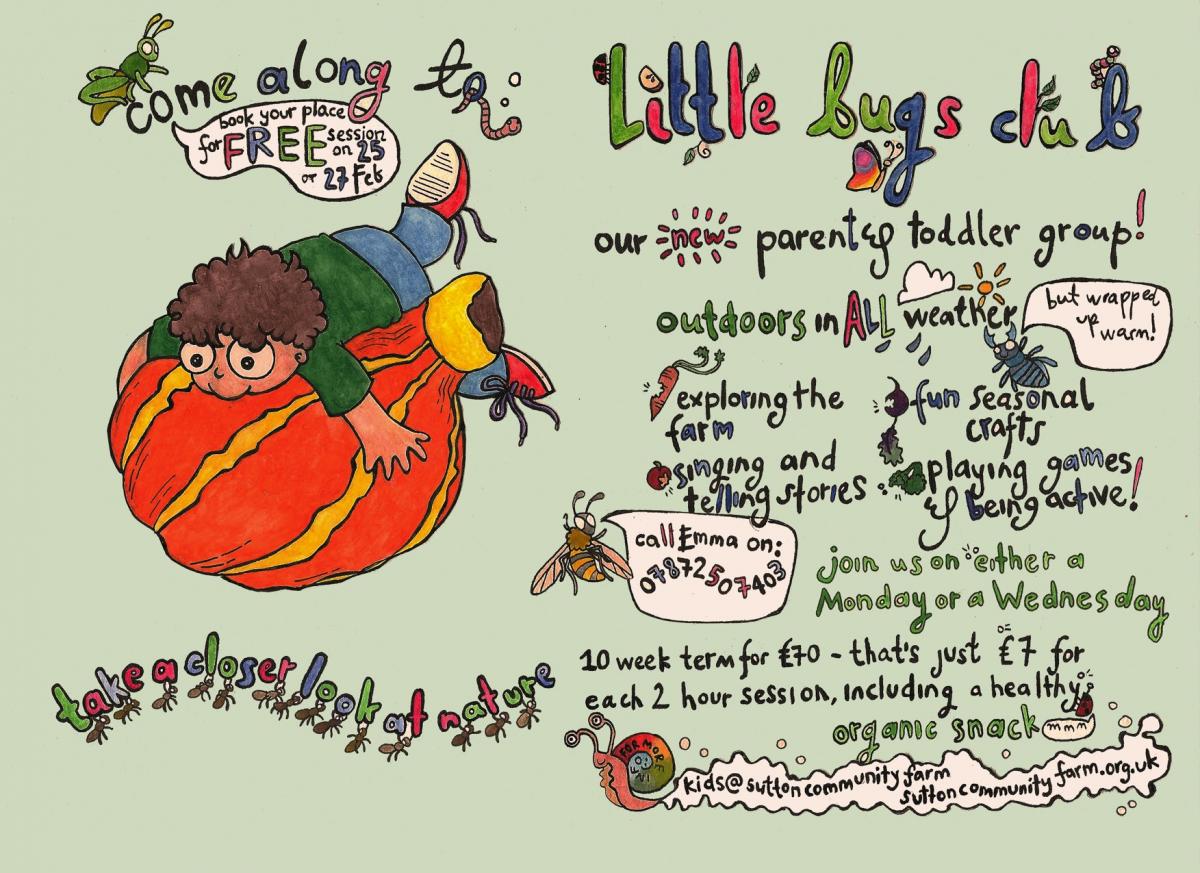 come along to
book your place
for FREE session
on 25
or 27 Feb
take a closer look at nature
Little bugs club
our new parent & toddler group!
outdoors in ALL weather
but wrapped
up
warm!
exploring the
farm
fun seasonal
crafts
singing and
telling stories
playing games
& being active!
call Emma on:
07872507403
join us on either a
Monday or a Wednesday
10 week term for £70 - that's just £7 for
each 2 hour session, including a healthy
organic snack
mmm
FOR MORE
INFO
kids@suttoncommunityfarm
suttoncommunityfarm.org.uk